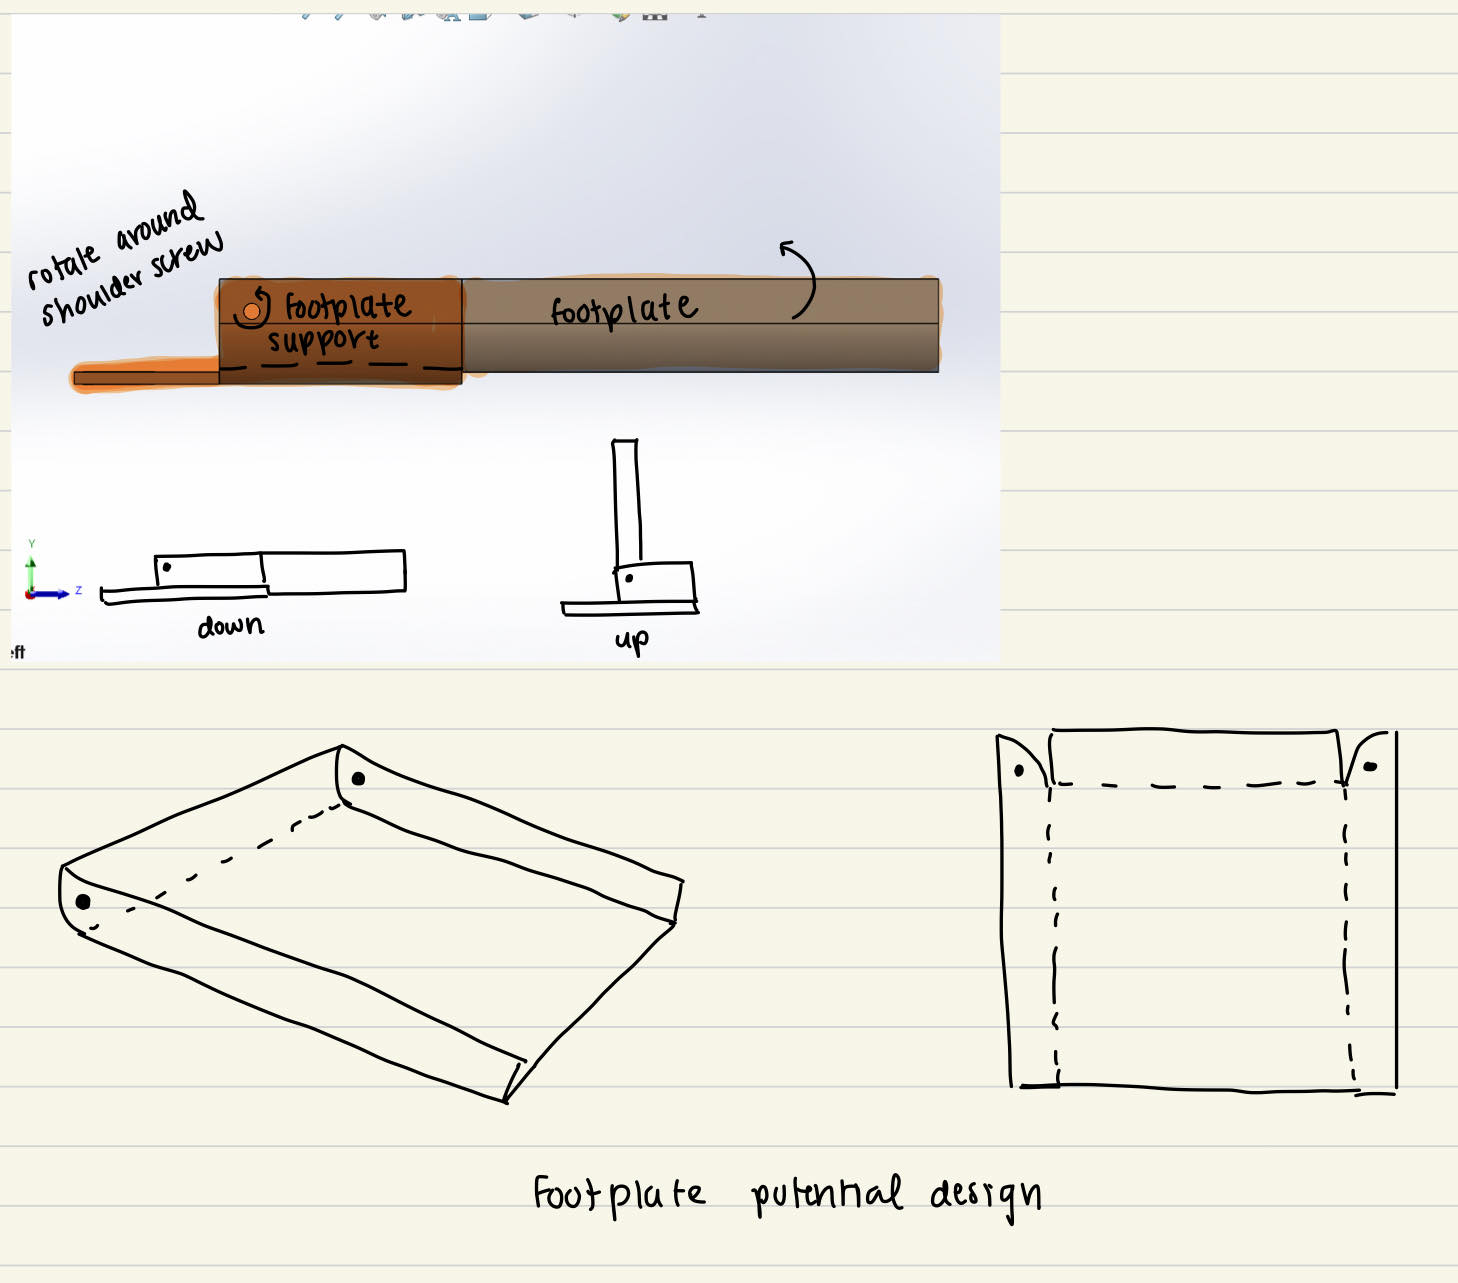 rotate around
shoulder screw
footplate
support
footplate
Y
Z
down
up
eft
Footplate potential design